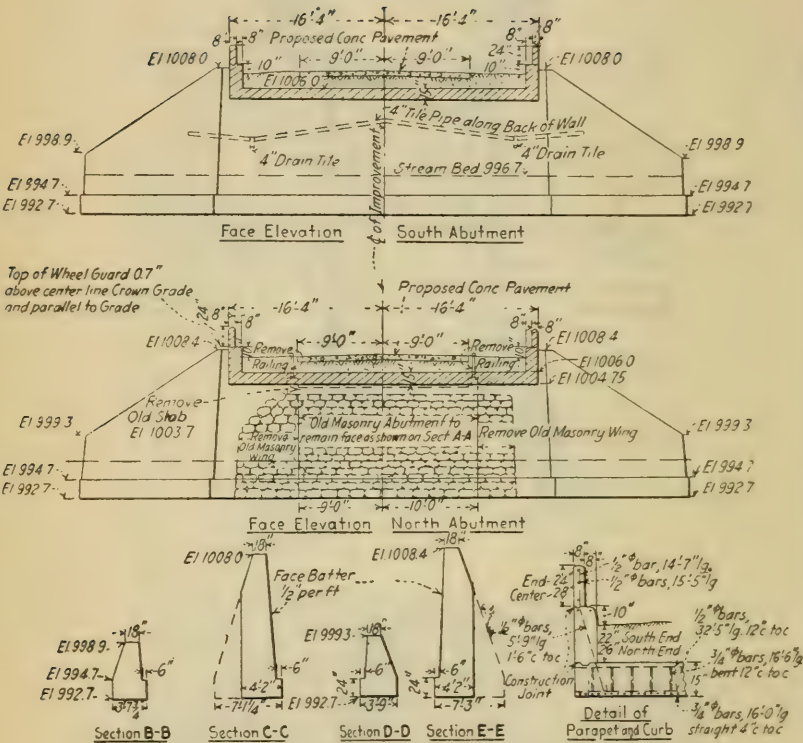 -16'-4" -16'-4"
8" 8" Proposed Conc Pavement 8" 8"
24"
El 1008.0 10" 9'-0" 9'-0" 10" El 1008.0
El 1006.0
4" Tile Pipe along Back of Wall
El 998.9 4" Drain Tile 4" Drain Tile El 998.9
Stream Bed 996.7
El 994.7 El 994.7
El 992.7 El 992.7
¢ of Improvement
Face Elevation South Abutment
Top of Wheel Guard 0.7"
above center line Crown Grade
and parallel to Grade
Proposed Conc Pavement
-16'-4" -16'-4"
24" 8" 8" 8" 8"
El 1008.4 Remove Railing 9'-0" 9'-0" Remove Railing El 1008.4
El 1006.0
El 1004.75
Remove Old Slab
El 1003.7
El 999.3 El 999.3
Remove Old Masonry Wing
Old Masonry Abutment to
remain face as shown on Sect A-A
Remove Old Masonry Wing
El 994.7 El 994.7
El 992.7 El 992.7
9'-0" 10'-0"
Face Elevation North Abutment
18"
El 998.9
6"
El 994.7
El 992.7
3'-7¼"
Section B-B
18"
El 1008.0
Face Batter
½" per ft
6"
4'2"
7'-1¼"
Section C-C
18"
El 999.3
6"
24"
El 992.7
3'-9"
Section D-D
18"
El 1008.4
6"
24"
4'2"
7'-3"
Section E-E
8"
8"
½" ϕ bar, 14'-7" lg.
½" ϕ bars, 15'-5" lg
End- 24"
Center- 28"
10"
½" ϕ bars,
32'5" lg. 12" c to c
22" South End
26" North End
½" ϕ bars,
5'-9" lg
1'-6" c to c
¾" ϕ bars, 16'-6" lg
bent 12" c to c
15"
Construction
Joint
¾" ϕ bars, 16'-0" lg
straight 4" c to c
Detail of
Parapet and Curb